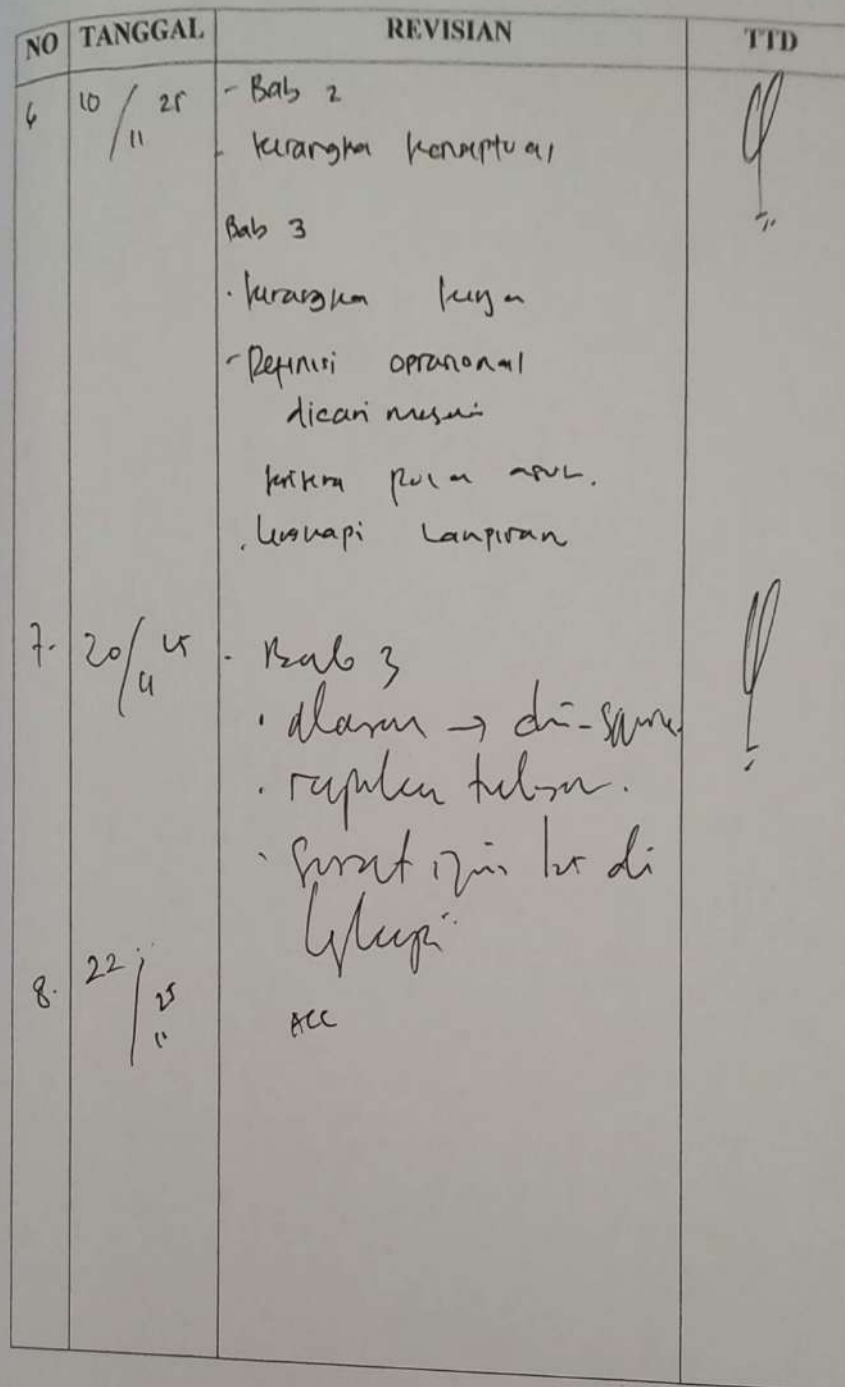 NO TANGGAL REVISIAN TTD
6 10/11 25 - Bab 2
- kerangka konseptual
Bab 3
. kerangka kerja
- Definisi oprasional
dicari
kriteria pola asuh.
. lengkapi Lampiran
7. 20/11 25 - Bab 3
. alasan →
. rapikan tulisan.
. surat izin di
lengkapi
8. 22/11 25 ACC